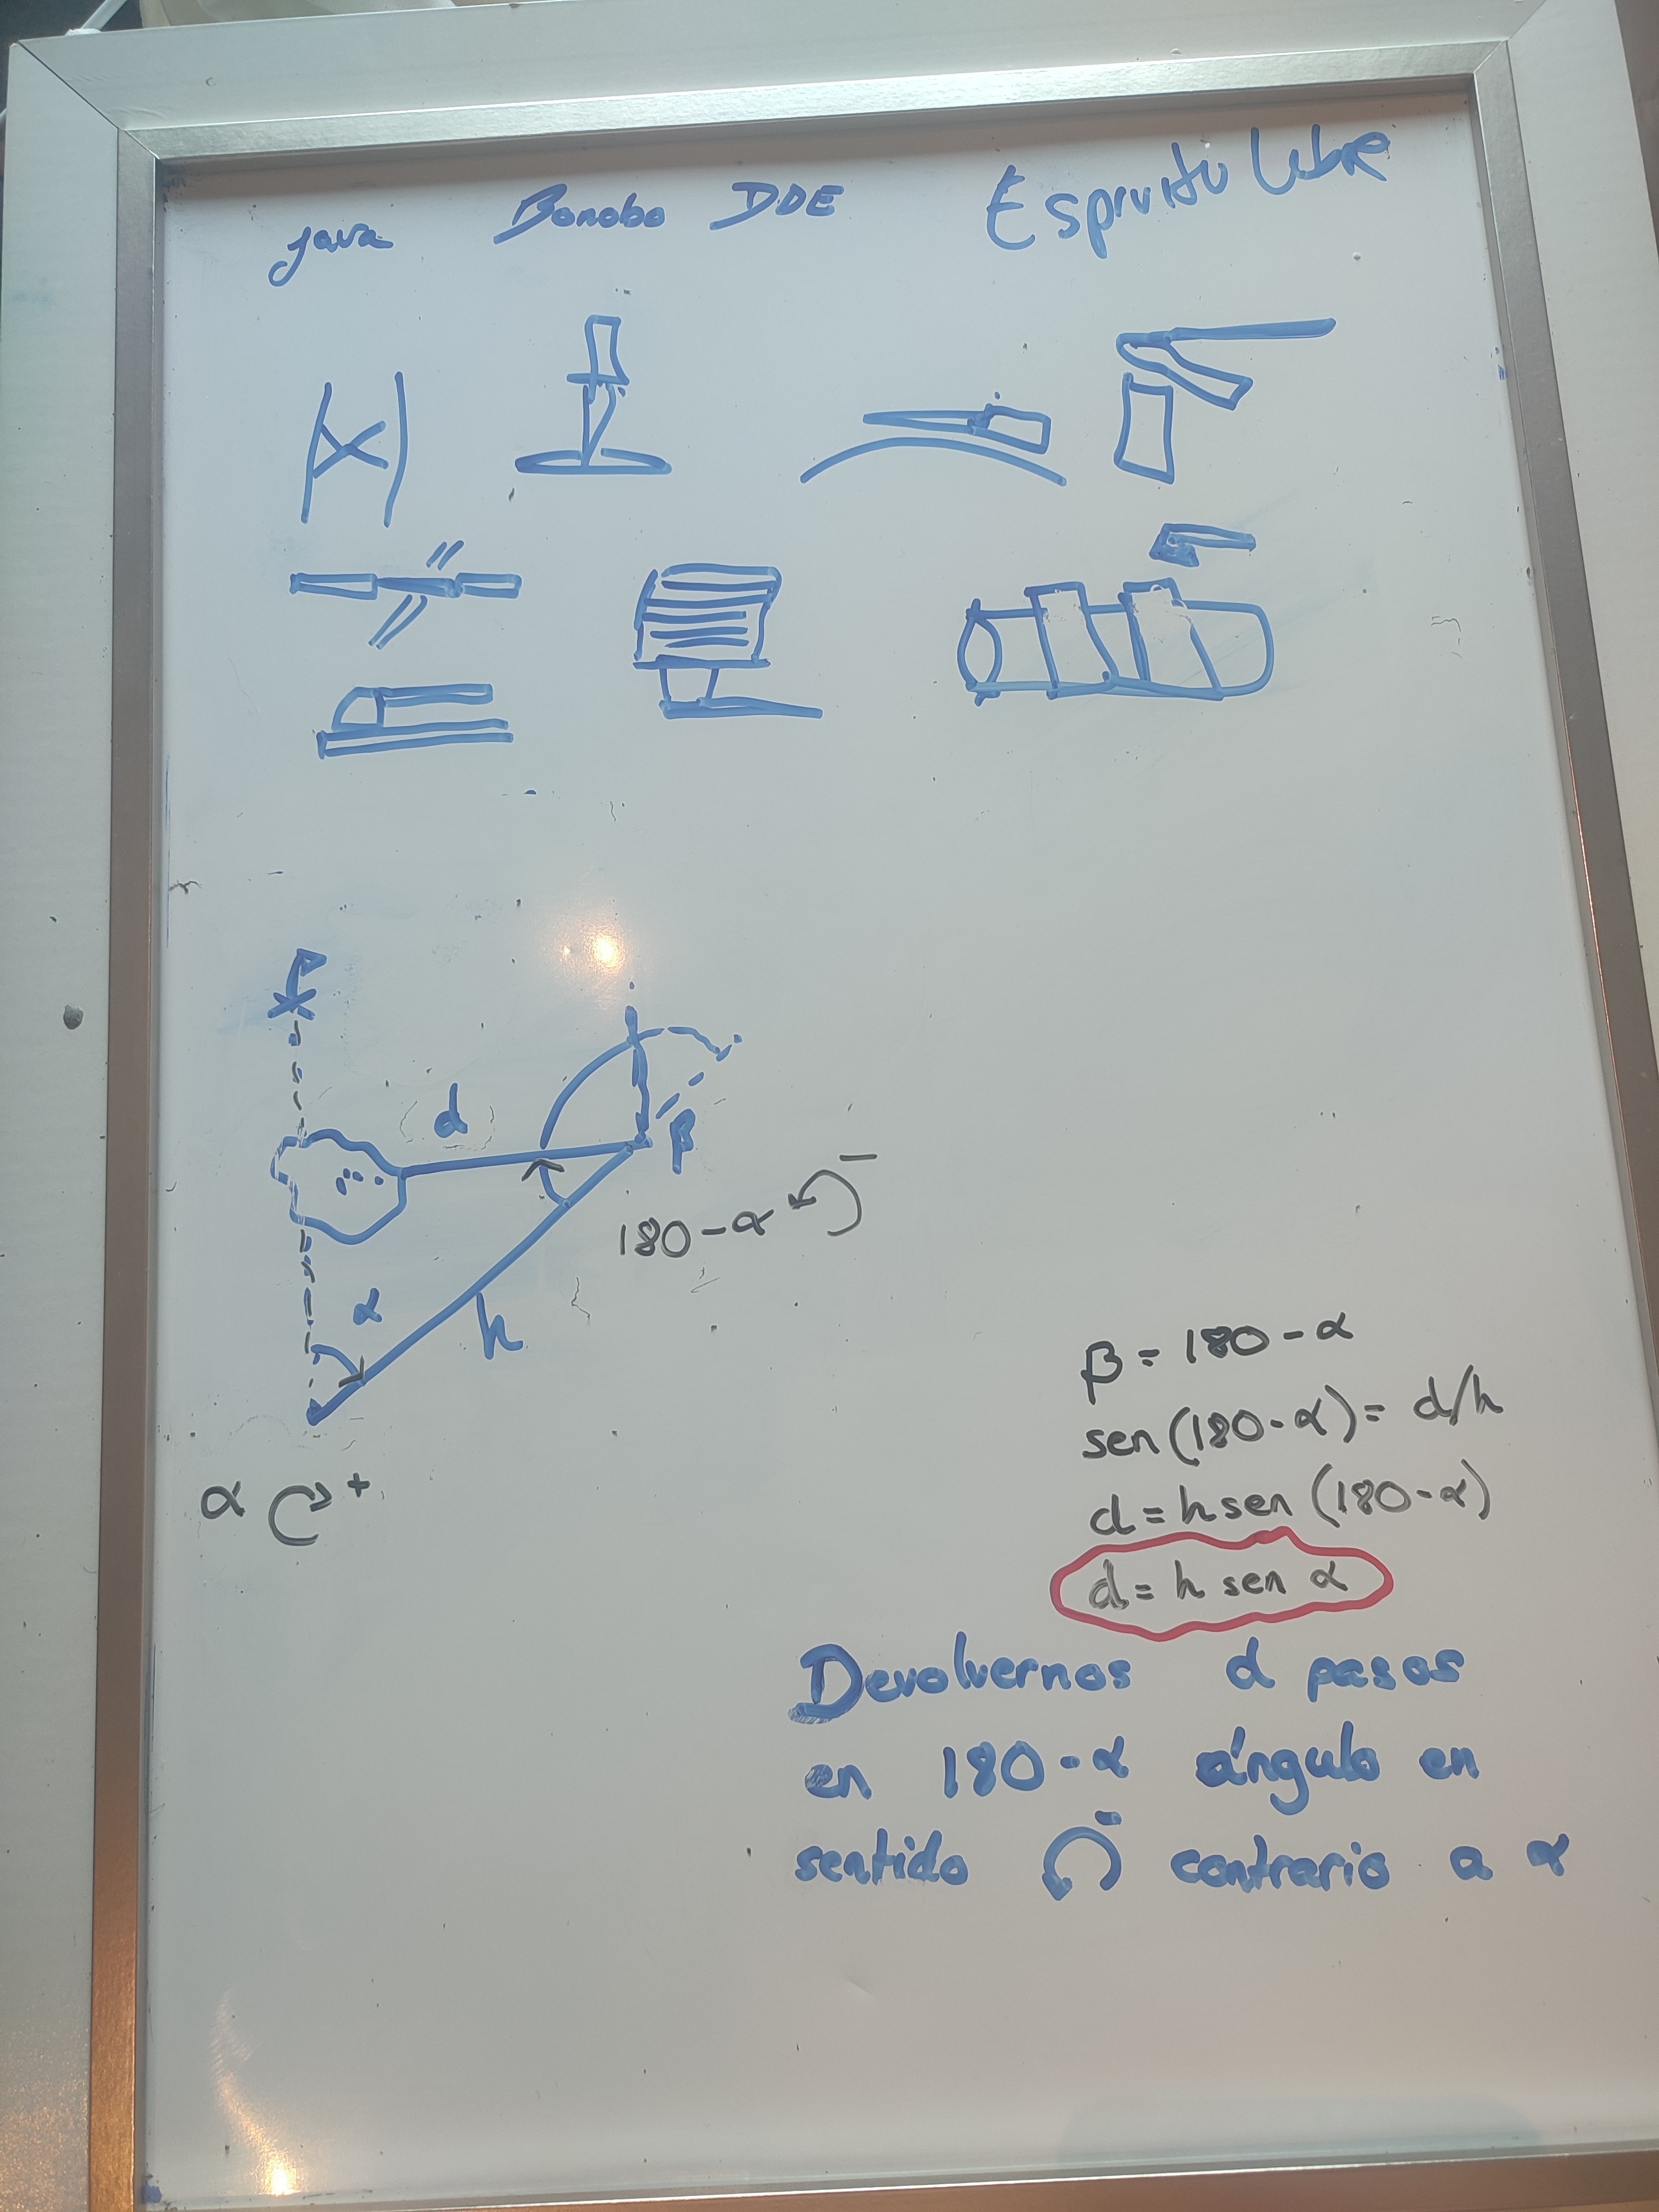 java Bonobo DDE Espiritu Libre
d
β
180-α -
α
h
α +
β = 180-α
sen(180-α) = d/h
d = h sen (180-α)
d = h sen α
Devolvernos d pasos
en 180-α ángulo en
sentido - contrario a α